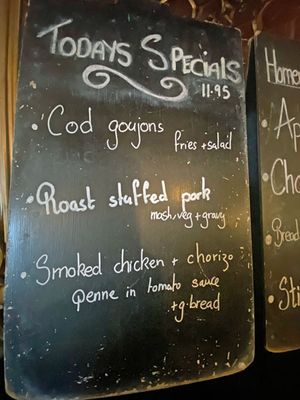 Todays Specials
11.95
• Cod goujons
fries + salad
• Roast stuffed pork
mash, veg + gravy
• Smoked chicken + chorizo
penne in tomato sauce
+ g. bread
Home
• Ap
• Cho
• Bread
• Sti